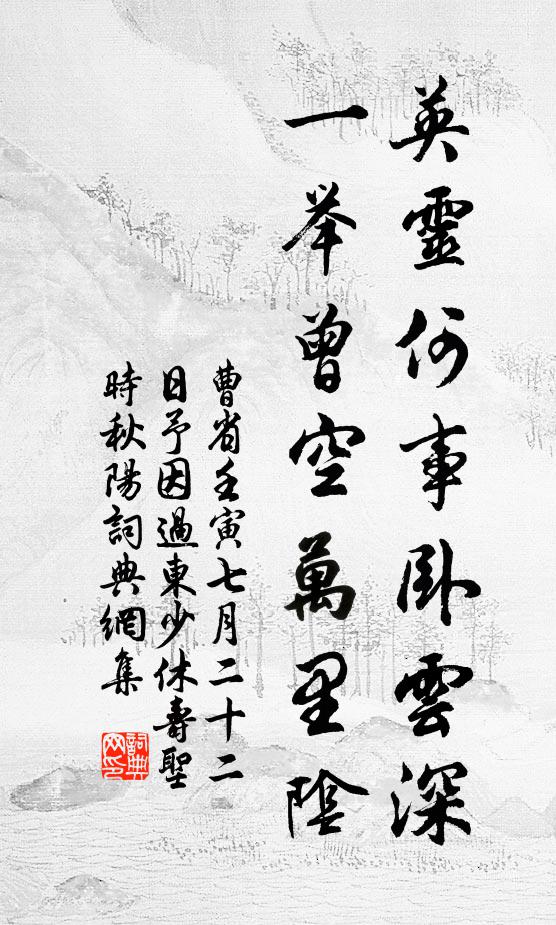 英靈何事臥雲深
一举曾空萬里陰
曹省壬寅七月二十二
日予因過東少休壽聖
時秋陽詞典網集
詞典
网印